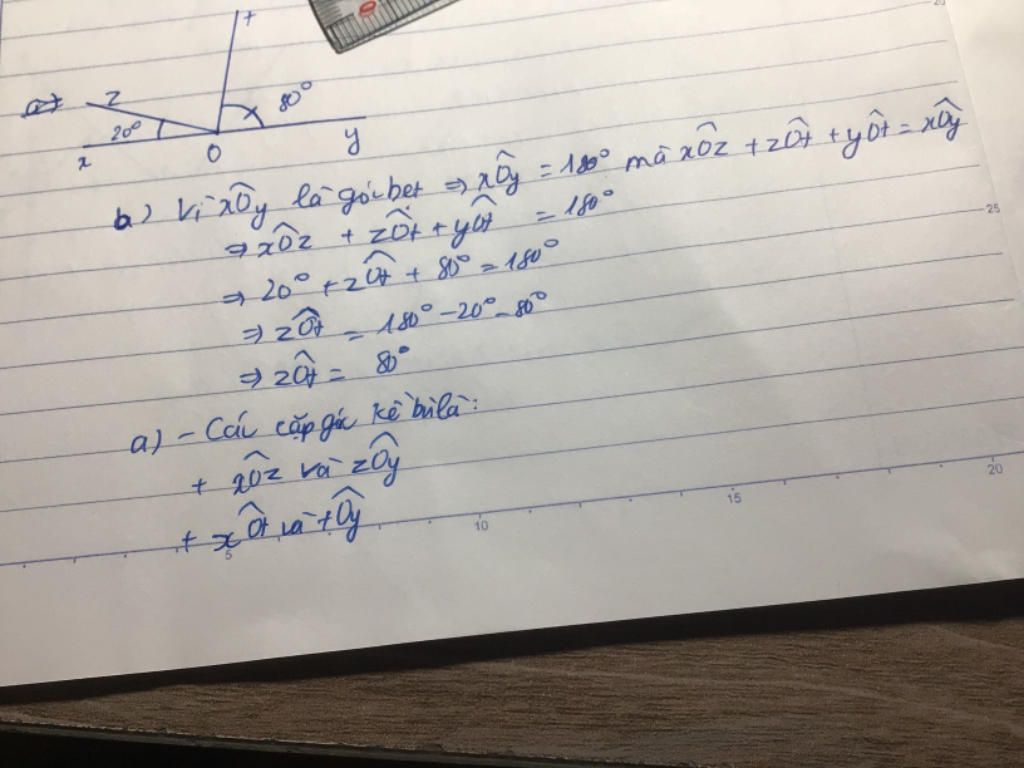 t
z
80°
20°
x
O
y
b) Vì xÔy là góc bẹt ⇒ xÔy = 180° mà xÔz + zÔt + yÔt = xÔy
⇒ xÔz + zÔt + yÔt = 180°
25
⇒ 20° + zÔt + 80° = 180°
⇒ zÔt = 180° - 20° - 80°
⇒ zÔt = 80°
a) - Các cặp góc kề bù là:
+ xÔz và zÔy
+ xÔt và tÔy
5
10
15
20